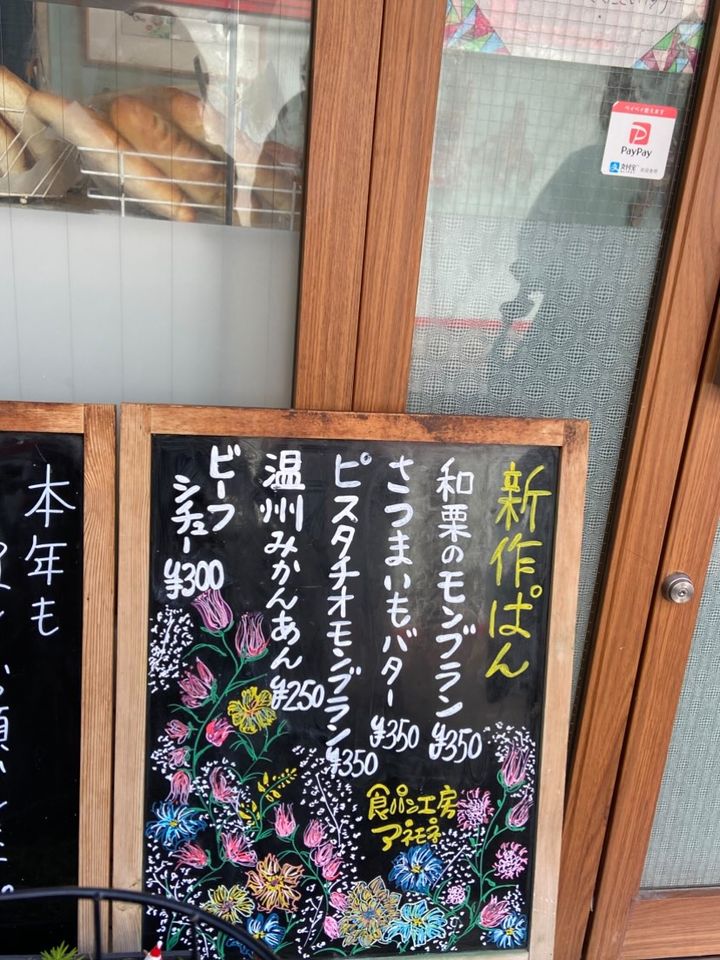 新作ぱん
和栗のモンブラン ¥350
さつまいもバター ¥350
ピスタチオモンブラン ¥350
温州みかんあん ¥250
ビーフ
シチュー ¥300
食パン工房
アネモネ
本年も
PayPay
支付宝